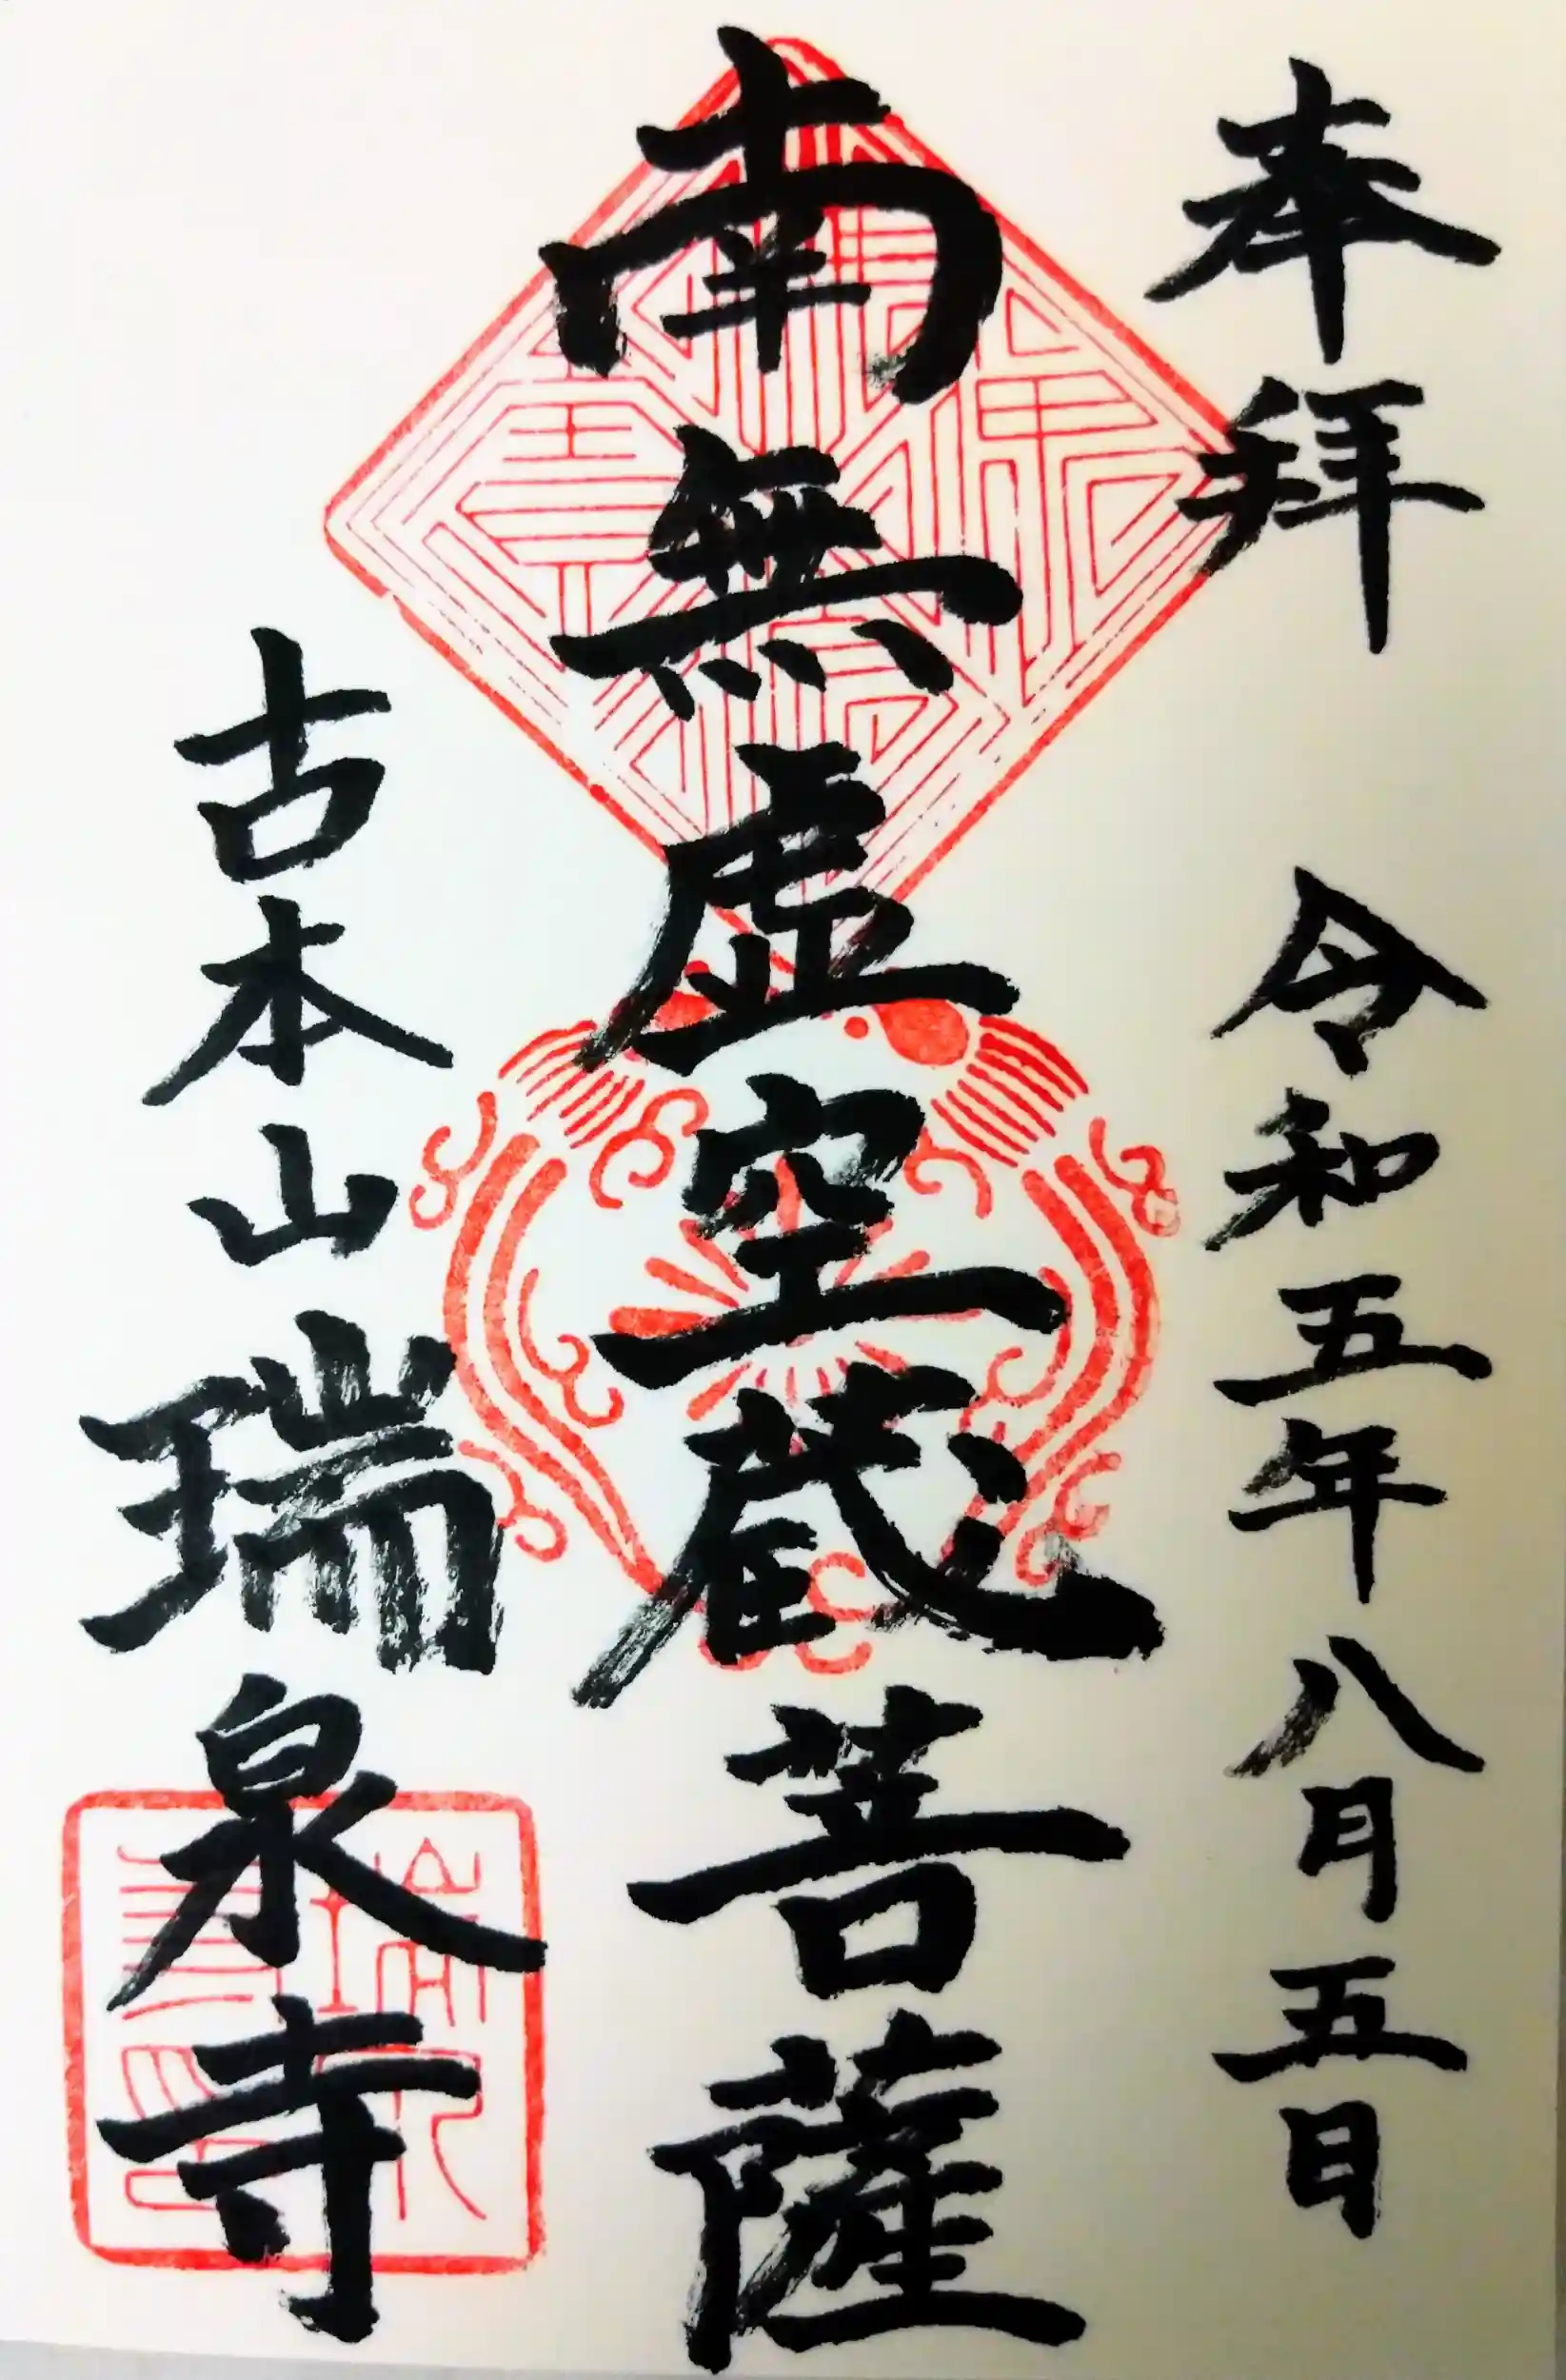 奉拜 令和五年八月五日
南無虚空蔵菩薩
古本山瑞泉寺